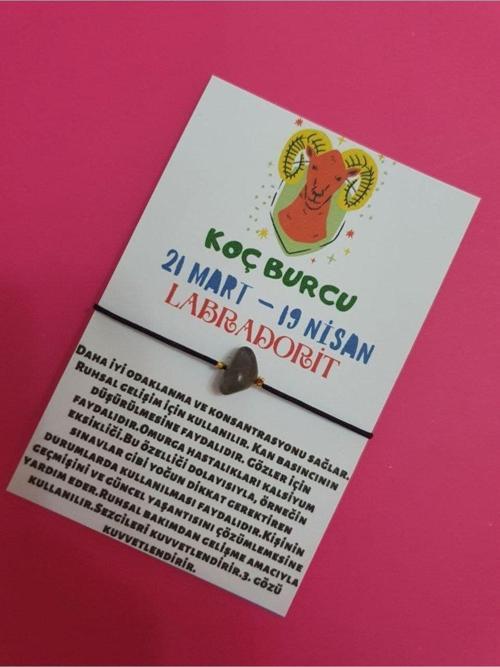 KOÇ BURCU
21 MART – 19 NİSAN
LABRADORİT
DAHA İYİ ODAKLANMA VE KONSANTRASYONU SAĞLAR.
RUHSAL GELİŞİM İÇİN KULLANILIR. KAN BASINCININ
DÜŞÜRÜLMESİNE FAYDALIDIR. GÖZLER İÇİN
FAYDALIDIR.OMURGA HASTALIKLARI KALSİYUM
EKSİKLİĞİ.BU ÖZELLİĞİ DOLAYISIYLA, ÖRNEĞİN
SINAVLAR GİBİ YOĞUN DİKKAT GEREKTİREN
DURUMLARDA KULLANILMASI FAYDALIDIR.KİŞİNİN
GEÇMİŞİNİ VE GÜNCEL YAŞANTISINI ÇÖZÜMLEMESİNE
YARDIM EDER.RUHSAL BAKIMDAN GELİŞME AMACIYLA
KULLANILIR.SEZGİLERİ KUVVETLENDİRİR.3. GÖZÜ
KUVVETLENDİRİR.